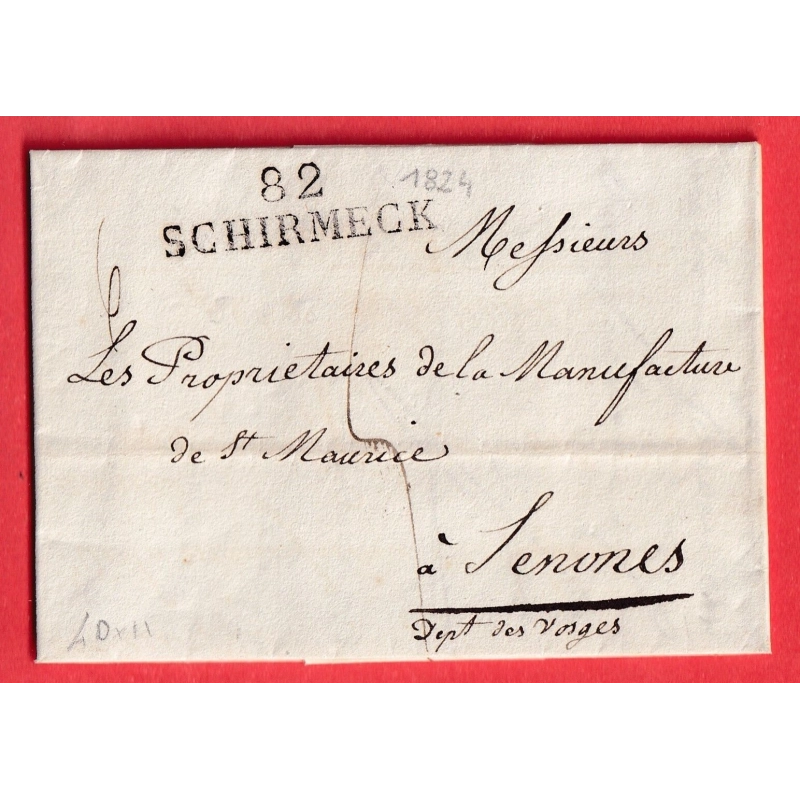 82
1824
SCHIRMECK
Messieurs
Les Proprietaires de la Manufacture
de St Maurice
à Senones
Dept des Vosges